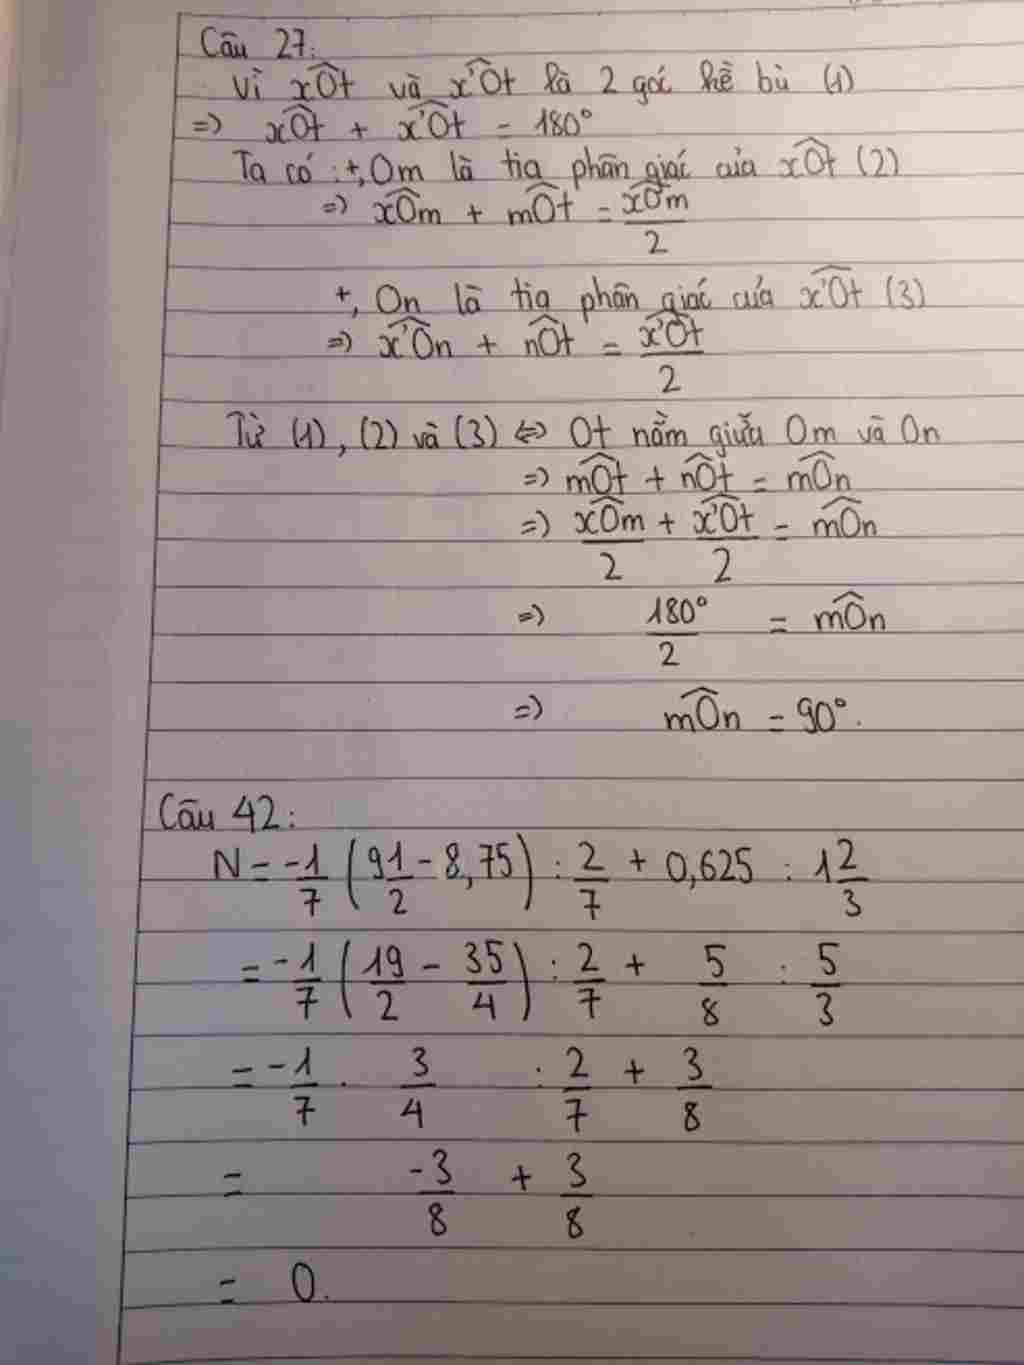 Câu 27:
Vì xOt và x'Ot là 2 góc kề bù (1)
=> xOt + x'Ot = 180°
Ta có : +, Om là tia phân giác của xOt (2)
=> xOm + mOt = xOm/2
+, On là tia phân giác của x'Ot (3)
=> x'On + nOt = x'Ot/2
Từ (1), (2) và (3) <=> Ot nằm giữa Om và On
=> mOt + nOt = mOn
=> xOm/2 + x'Ot/2 = mOn
=> 180°/2 = mOn
=> mOn = 90°.
Câu 42:
N = -1/7 (9 1/2 - 8,75) : 2/7 + 0,625 : 1 2/3
= -1/7 (19/2 - 35/4) : 2/7 + 5/8 : 5/3
= -1/7 . 3/4 : 2/7 + 3/8
= -3/8 + 3/8
= 0.